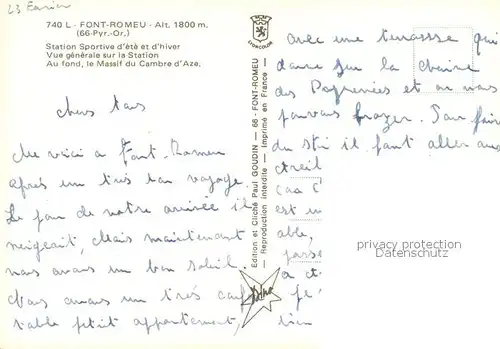 23 Février
740 L. - FONT-ROMEU - Alt. 1800 m.
(66-Pyr.-Or.)
Station Sportive d'été et d'hiver
Vue générale sur la Station
Au fond, le Massif du Cambre d'Aze.
LYONCOLOR
Edition et Cliché Paul GOUDIN — 66 - FONT-ROMEU
— Reproduction interdite — Imprimé en France —
chers tous
Me voici a Font-Romeu
après un très bon voyage.
Le jour de notre arrivée il
neigeait, Mais maintenant
nous avons un bon soleil.
Nous avons un très conf
table petit appartement,
avec une terrassse qui
donne sur la chaine
des Pyrénées et où nous
pouvons bronzer. Pour faire
du ski il faut aller aux
est
able,
passe
a
je
bien
protection protégée
Datenschutz